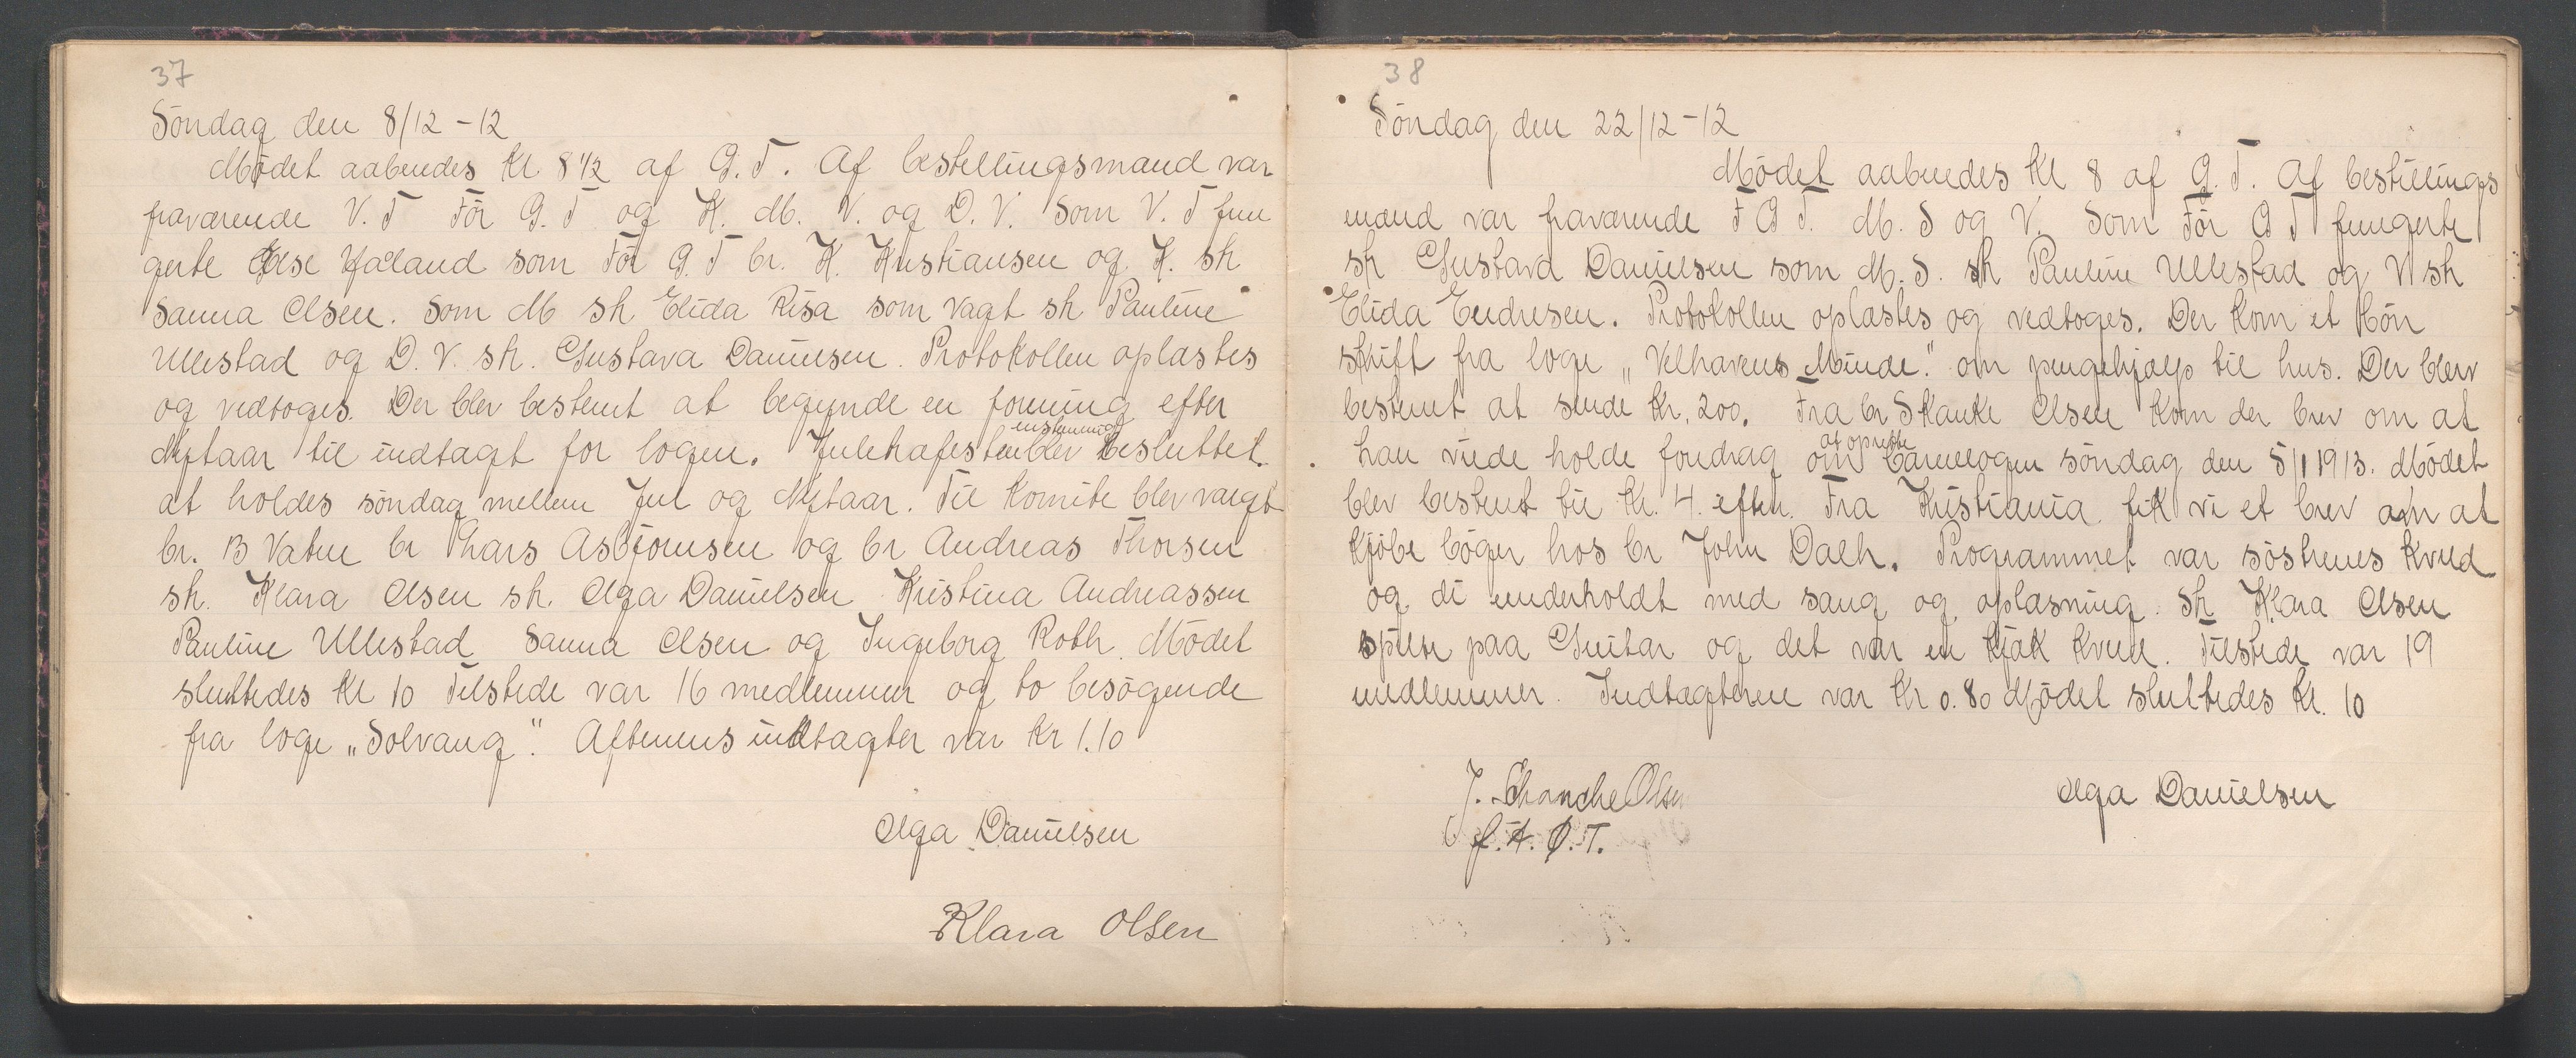 37
Söndag den 8/12 - 12
Mödet aabnedes Kl 8 1/2 af G. T. Af bestillingsmænd var
fraværende V. T För G. T og K. M. V. og D. V. Som V. T fun
gerte Else Haaland som För G. T br. K. Kristiansen og K. str
Sanna Olsen. Som M str Elida Risa som Vagt str Pauline
Ullestad og D. V. str. Gustava Danielsen. Protokollen oplæstes
og vedtoges. Der blev bestemt at begynde en forening efter
Nytaar til indtægt for logen. Julekafesten blev enstemmig besluttet
at holdes söndag mellem Jul og Nytaar. Til Komite blev valgt
br. B Vatne br Lars Asbjörnsen og br Andreas Thorsen
str. Klara Olsen str. Olga Danielsen Kristina Andreassen
Pauline Ullestad Sanna Olsen og Ingeborg Roth. Mödet
sluttedes Kl 10 Tilstede var 16 medlemmer og to besögende
fra loge „Solvang". Aftenens indtægter var Kr 1.10
Olga Danielsen
Klara Olsen
38
Söndag den 22/12 - 12
Mödet aabnedes Kl 8 af G. T. Af bestillings
mænd var fraværende F G T. M. S og V. Som För G T fungerte
str Gustava Danielsen som M. S. str Pauline Ullestad og V str
Elida Endresen. Protokollen oplæstes og vedtoges. Der Kom et Rön
skrift fra loge „Velhavens Minde". om pengehjælp til hus. Der blev
bestemt at sende Kr. 200. Fra br Skanke Olsen Kom der brev om at
han vilde holde foredrag om at oprette barnelogen söndag den 5/1 1913. Mödet
blev bestemt til Kl. 4 efterm. Fra Kristiania fik vi et brev om at
Kjöbe böger hos br John Dalh. Programmet var söstrenes Kveld
og di underholdt med sang og oplæsning. Str Klara Olsen
spilte paa Guitar og det var en Kjæk Kveld. Tilstede var 19
medlemmer. Indtægterne var Kr 0.80 Mödet sluttedes Kl. 10
J. Schanche Olsen
f. t. Ø. T.
Olga Danielsen